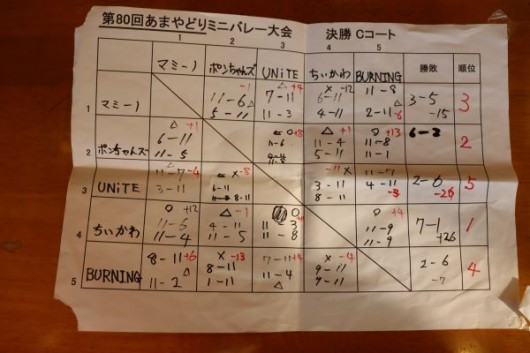 第80回あまやどりミニバレー大会 決勝 Cコート
1 2 3 4 5
マミーノ ポンちゃんズ UNiTE ちいかわ BURNING 勝敗 順位
1 マミーノ
-1 +4 × -12 11-8
11-6 △ 7-11 6-11 △ 3-5 3
5-11 11-3 4-11 2-11 -6 -15
2 ポンちゃんズ
△ +1 △ +1 ○ +13 6-2 2
6-11 11-6 11-4 11-8
11-5 5-11 11-1
3 UNiTE
11-7 -4 × -8 × 11-7 2-6 5
3-11 6-11 3-11 4-11 -26
8-11 8-11 -3
4 ちいかわ
○ +12 △ -1 ○ ○ +4 7-1 1
11-6 4-11 11 3 11-9 +26
11-4 11-5 11-8 11-9
5 BURNING
8-11 +6 × -13 7-11 × -4 2-6 4
11-2 △ 8-11 11-4 9-11 -7
1-11 △ 9-11